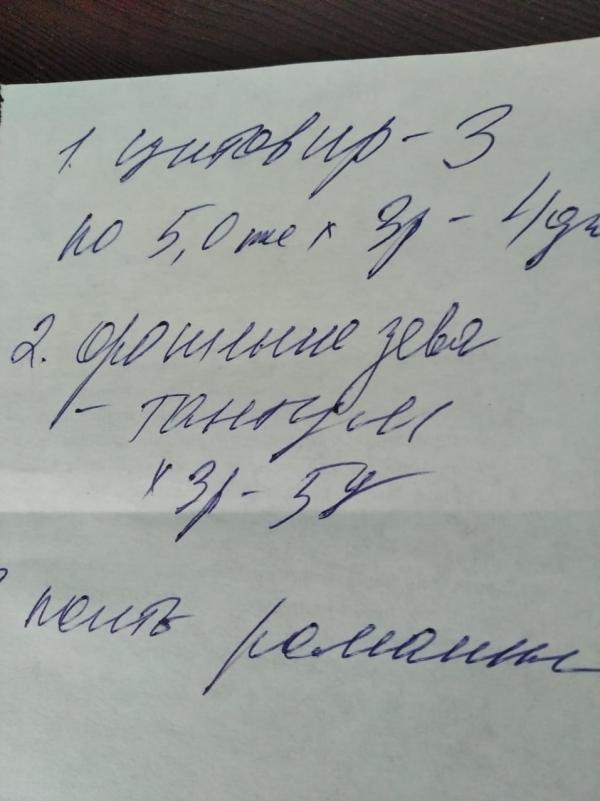 1. цитовир - 3
по 5,0 мл х 3р - 4 дн
2. орошение зева
- тантум
х 3р - 5 д
поить ромашки